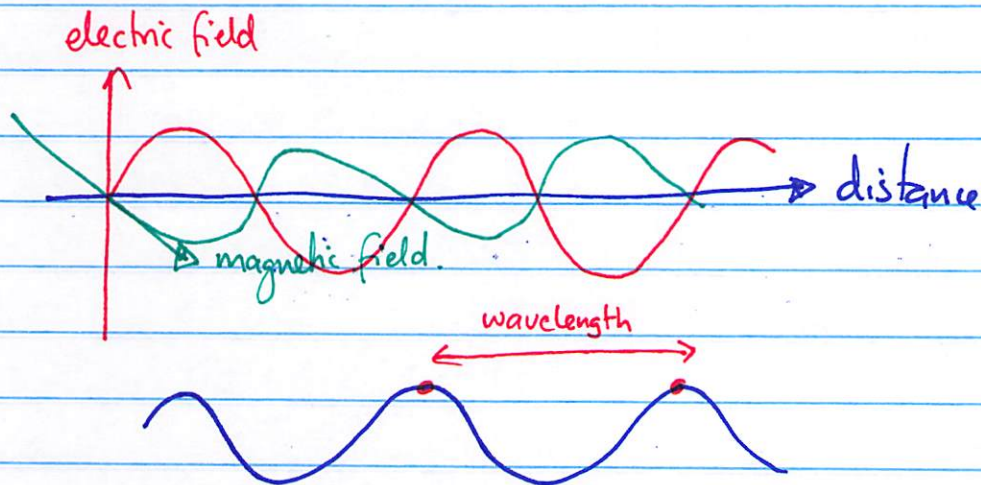 electric field
distance
magnetic field.
wavelength